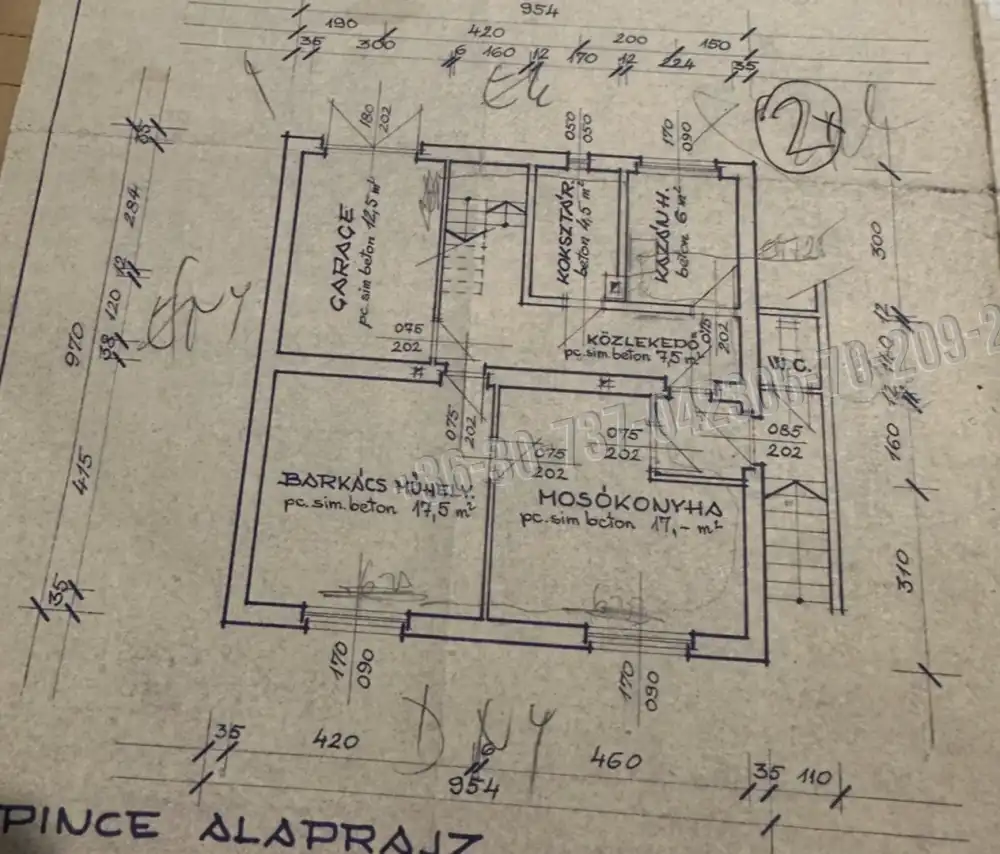 954
190 420 200 150
35 300 6 160 12 170 12 224 35
180
202
050
050
170
090
2x
35
284
12
120
38
970
415
35
GARAGE
pc. sim beton 12,5 m²
KOKSZTÁR.
beton 4,5 m²
KAZÁN H.
beton 6 m²
300
12
12
160
310
075
202
KÖZLEKEDŐ
pc. sim beton 7,5 m²
075
202
W.C.
075
202
075
202
075
202
085
202
BARKÁCS MŰHELY.
pc. sim. beton 17,5 m²
MOSÓKONYHA
pc. sim beton 17,- m²
170
090
170
090
35 420 6 460 35 110
954
PINCE ALAPRAJZ